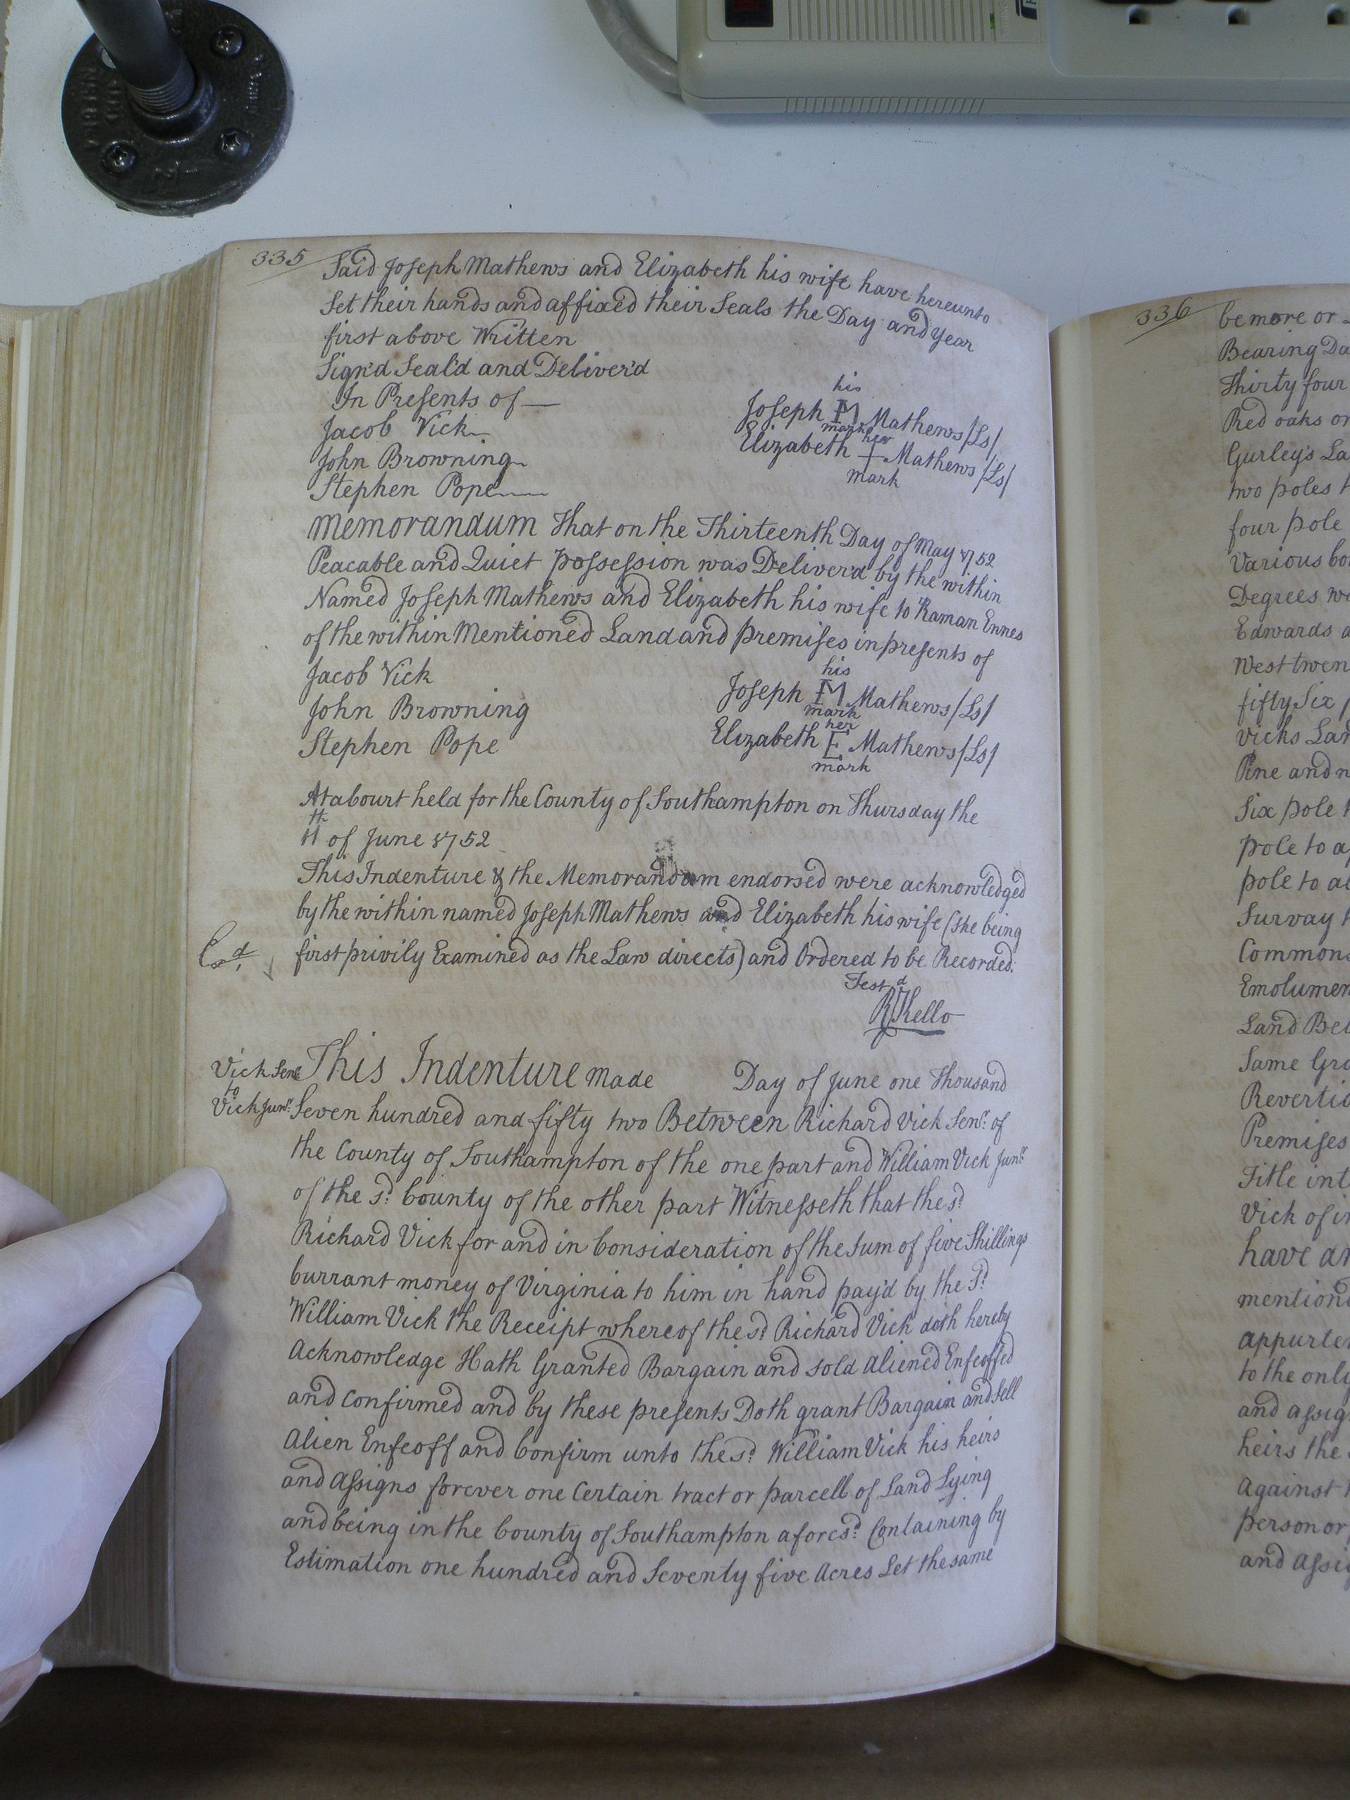 335
Said Joseph Mathews and Elizabeth his wife have hereunto
Set their hands and affixed their Seals the Day and year
first above Written
Sign'd Seal'd and Deliver'd
In Presents of
Jacob Vick
John Browning
Stephen Pope
his
Joseph M Mathews /Ls/
mark
her
Elizabeth + Mathews /Ls/
mark
Memorandum That on the Thirteenth Day of May 1752
Peacable and Quiet possession was Deliver'd by the within
Named Joseph Mathews and Elizabeth his wife to Raman Ennes
of the within Mentioned Land and premises in presents of
Jacob Vick
John Browning
Stephen Pope
his
Joseph M Mathews /Ls/
mark
her
Elizabeth E Mathews /Ls/
mark
At a Court held for the County of Southampton on Thursday the
11th of June 1752
This Indenture & the Memorandum endorsed were acknowledged
by the within named Joseph Mathews and Elizabeth his wife (she being
first privily Examined as the Law directs) and Ordered to be Recorded.
Exd.
Test
Rd Kello
Vick Senr
to
Vick Junr.
This Indenture made Day of June one Thousand
Seven hundred and fifty two Between Richard Vick Senr. of
the County of Southampton of the one part and William Vick Junr.
of the sd. County of the other part Witnesseth that the sd.
Richard Vick for and in Consideration of the Sum of five Shillings
Currant money of Virginia to him in hand pay'd by the Sd.
William Vick the Receipt whereof the sd. Richard Vick doth hereby
Acknowledge Hath Granted Bargain and sold Aliened Enfeoffed
and Confirmed and by these presents Doth grant Bargain and Sell
Alien Enfeoff and Confirm unto the sd. William Vick his heirs
and Assigns forever one Certain tract or parcell of Land Lying
and being in the County of Southampton aforesd. Containing by
Estimation one hundred and Seventy five Acres Let the same
336
be more or
Bearing
Thirty four
Red oaks
Gurley's
two poles
four pole
Various
Degrees
Edwards
West
fifty Six
Vicks
Pine and
Six pole
pole to
pole to
Survay
Common
Land
Same
Premises
Title
Vick of
have
to the only
and
heirs the
Against
person or
and